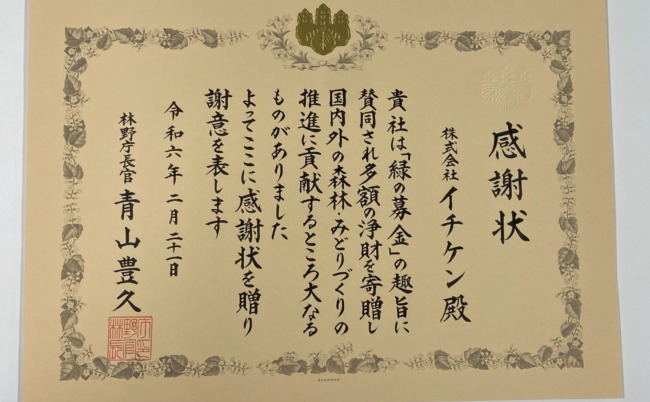 感謝状
株式会社イチケン殿
貴社は「緑の募金」の趣旨に
賛同され多額の浄財を寄贈し
国内外の森林・みどりづくりの
推進に貢献するところ大なる
ものがありました
よってここに感謝状を贈り
謝意を表します
令和六年二月二十一日
林野庁長官 青山豊久